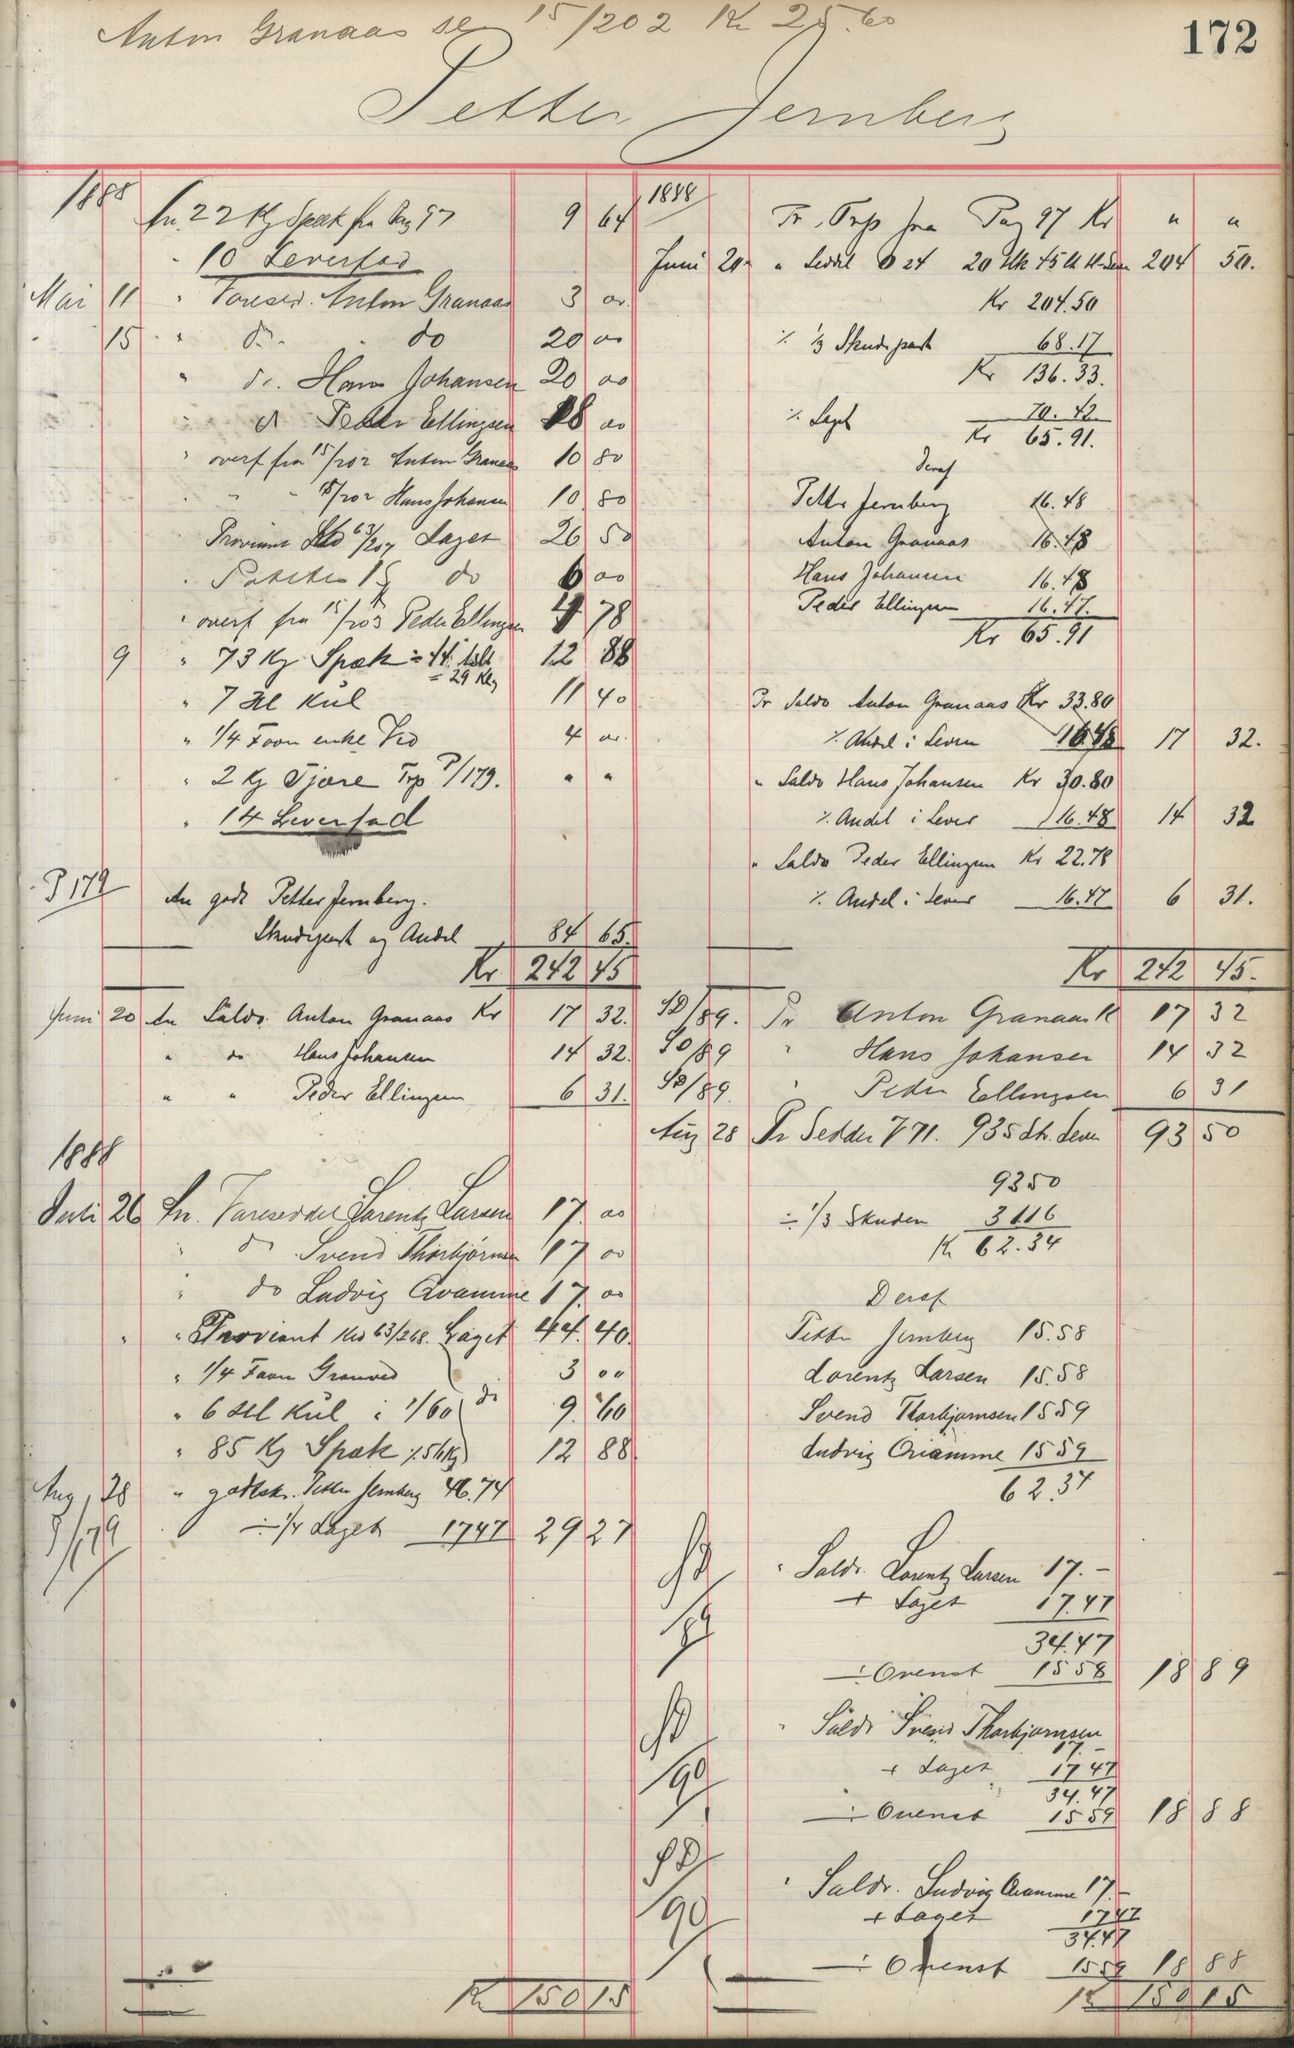 172
Anton Granaas se 15/202 Kr 25.60
Petter Jernberg
1888
An 22 Kg Spæk fra Pag 97 9 64
" 10 Leverfad
Mai 11 " Varesed. Anton Granaas 3 00
15 " do do 20 00
" do. Hans Johansen 20 00
" do Peder Ellingsen 18 00
" overf fra 15/202 Anton Granaas 10 80
" " " 15/202 Hans Johansen 10 80
Proviant 63/207 Laget 26 50
" Poteter do 6 00
" overf fra 15/203 Peder Ellingsen 4 78
9 " 73 Kg Spæk ÷ 44 = 29 Kg 12 88
" 7 Hl Kul 11 40
" 1/4 Favn enkl Ved 4 00
" 2 Kg Tjære Trp P/179. " "
" 14 Leverfad
P 179 An godt Petter Jernberg.
Skudepart og Andel 84 65.
Kr 242 45
Juni 20 An Saldo Anton Granaas Kr 17 32.
" do Hans Johansen 14 32.
" " Peder Ellingsen 6 31.
1888
Juli 26 An. Varesedder Lorentz Larsen 17. 00
" do Svend Thorbjørnsen 17 00
" do Ludvig Qvamme 17. 00
" " Proviant Ked 63/268. Laget 44. 40.
" 1/4 Favn Granved 3 00
" 6 Hl Kul à 1/60 do 9. 60
" 85 Kg Spæk 12 88
Aug 28 " godtsk. Petter Jernberg 46.74
P/179 ÷ 1/4 Laget 1747 29 27
Kr 150 15
1888
Pr. Trp fra Pag 97 Kr " "
Juni 20 " Seddel 24 20 Hk 45 Lt 204 50.
Kr 204.50
% 1/3 Skudepart 68.17
Kr 136.33.
% Laget 70.42
Kr 65.91.
Deraf
Petter Jernberg 16.48
Anton Granaas 16.48
Hans Johansen 16.48
Peder Ellingsen 16.47.
Kr 65.91
Pr Saldo Anton Granaas Kr 33.80
% Andel i Leven 16.48 17 32.
" Saldo Hans Johansen Kr 30.80
% Andel i Lever 16.48 14 32
" Saldo Peder Ellingsen Kr 22.78
% Andel i Lever 16.47 6 31.
Kr 242 45.
/89. Pr Anton Granaas K 17 32
/89 " Hans Johansen 14 32
/89. " Peder Ellingsen 6 31
Aug 28 Pr Sedder 71. 935 Lt. Lever 93 50
9350
÷ 1/3 Skuden 3116
Kr 62.34
Deraf
Petter Jernberg 15.58
Lorentz Larsen 15.58
Svend Thorbjørnsen 1559
Ludvig Qvamme 1559
62.34
/89 " Saldo. Lorentz Larsen 17.-
+ Laget 17.47
34.47
÷ Ovenst 1558 18 89
/90 " Saldo Svend Thorbjørnsen
17.-
+ Laget 1747
34.47
÷ Ovenst 1559 18 88
/90 " Saldo. Ludvig Qvamme 17.-
+ Laget 1747
34.47
÷ Ovenst 1559 18 88
Kr 150 15